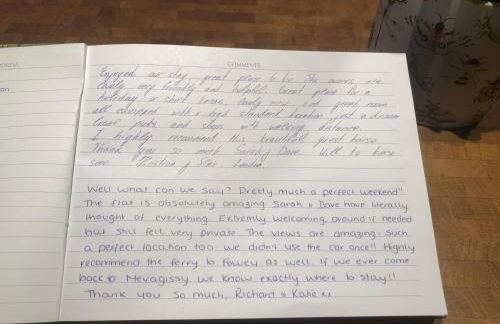 ADDRESS
on
COMMENTS
Enjoyed our stay, great place to be. The owners are
lovely very friendly and helpful. Great place for a
holiday or short break, lovely view and great room
all equipped with a high standard. Location just a dream
pubs and shops with walking distance.
I highly recommend this beautiful guest house.
Thank you so much Sarah & Dave. Will be back
soon. Kristina & London.
Well what can we say? Pretty much a perfect weekend"
The flat is absolutely amazing. Sarah & Dave have literally
thought of everything. Extremly welcoming, around if needed
but still felt very private. The views are amazing. Such
a perfect location too. We didn't use the car once!! Highly
recommend the ferry to Fowey as well. If we ever come
back to Mevagissy we know exactly where to stay!!
Thank you so much, Richard & Katie xx